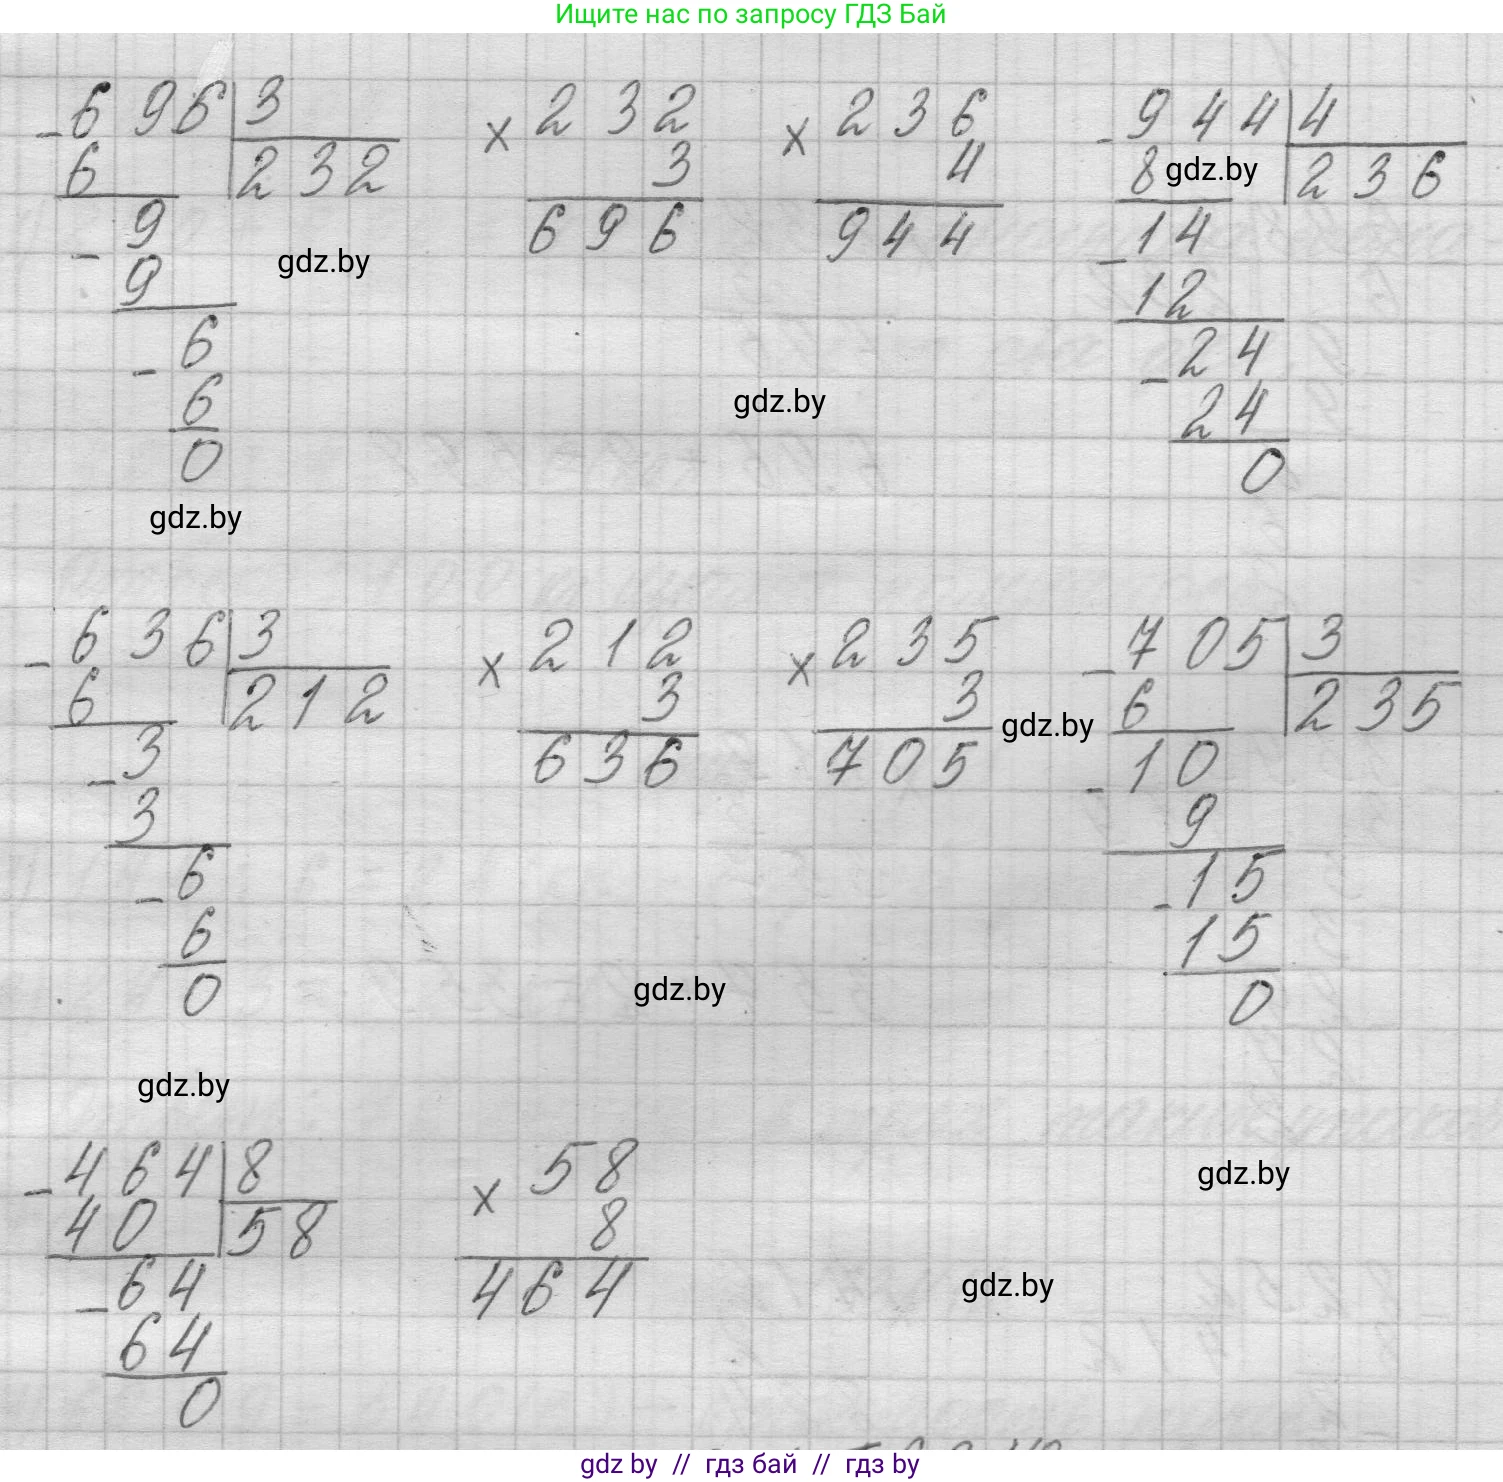 Ищите нас по запросу ГДЗ Бай
- 696 | 3 × 232 × 236 - 944 | 4
6 232 3 4 8 gdz.by 236
9 696 944 14
- gdz.by -
9 12
6 24
- gdz.by -
6 24
0 0
gdz.by
- 636 | 3 × 212 × 235 - 705 | 3
6 212 3 3 gdz.by 6 235
- 3 636 705 - 10
3 9
- 6 - 15
6 15
0 gdz.by 0
gdz.by
- 464 | 8 × 58 gdz.by
40 58 8
- 64 464 gdz.by
64
0
gdz by // гдз бай // гдз by